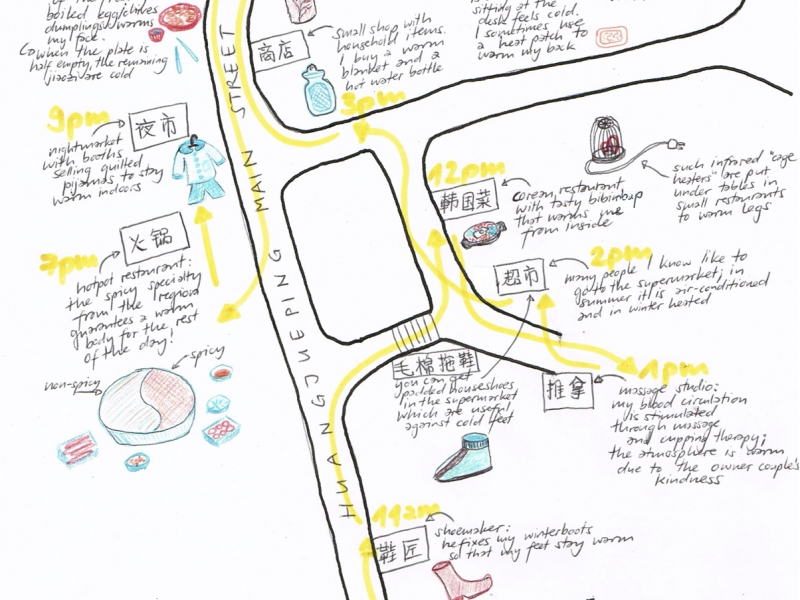 boiled egg/chives
dumplings warms
my face.
when the plate is
half empty, the remaining
jiaozi are cold
商店
small shop with
household items.
I buy a warm
blanket and a
hot water bottle
sitting at the
desk feels cold.
I sometimes use
a heat patch to
warm my back
3pm
9pm
夜市
nightmarket
with booths
selling quilted
pijamas to stay
warm indoors
12pm
韩国菜
Corean restaurant
with tasty bibimbap
that warms me
from inside
such infrared "cage
heaters" are put
under tables in
small restaurants
to warm legs
7pm
火锅
hotpot restaurant:
the spicy specialty
from the region
guarantees a warm
body for the rest
of the day!
spicy
non-spicy
2pm
超市
many people I know like to
go to the supermarket; in
summer it is air-conditioned
and in winter heated
毛棉拖鞋
you can get
padded houseshoes
in the supermarket
which are useful
against cold feet
1pm
推拿
massage studio:
my blood circulation
is stimulated
through massage
and cupping therapy;
the atmosphere is warm
due to the owner couple's
kindness
11am
鞋匠
shoemaker:
he fixes my winterboots
so that my feet stay warm
HUANGJUEPING MAIN STREET